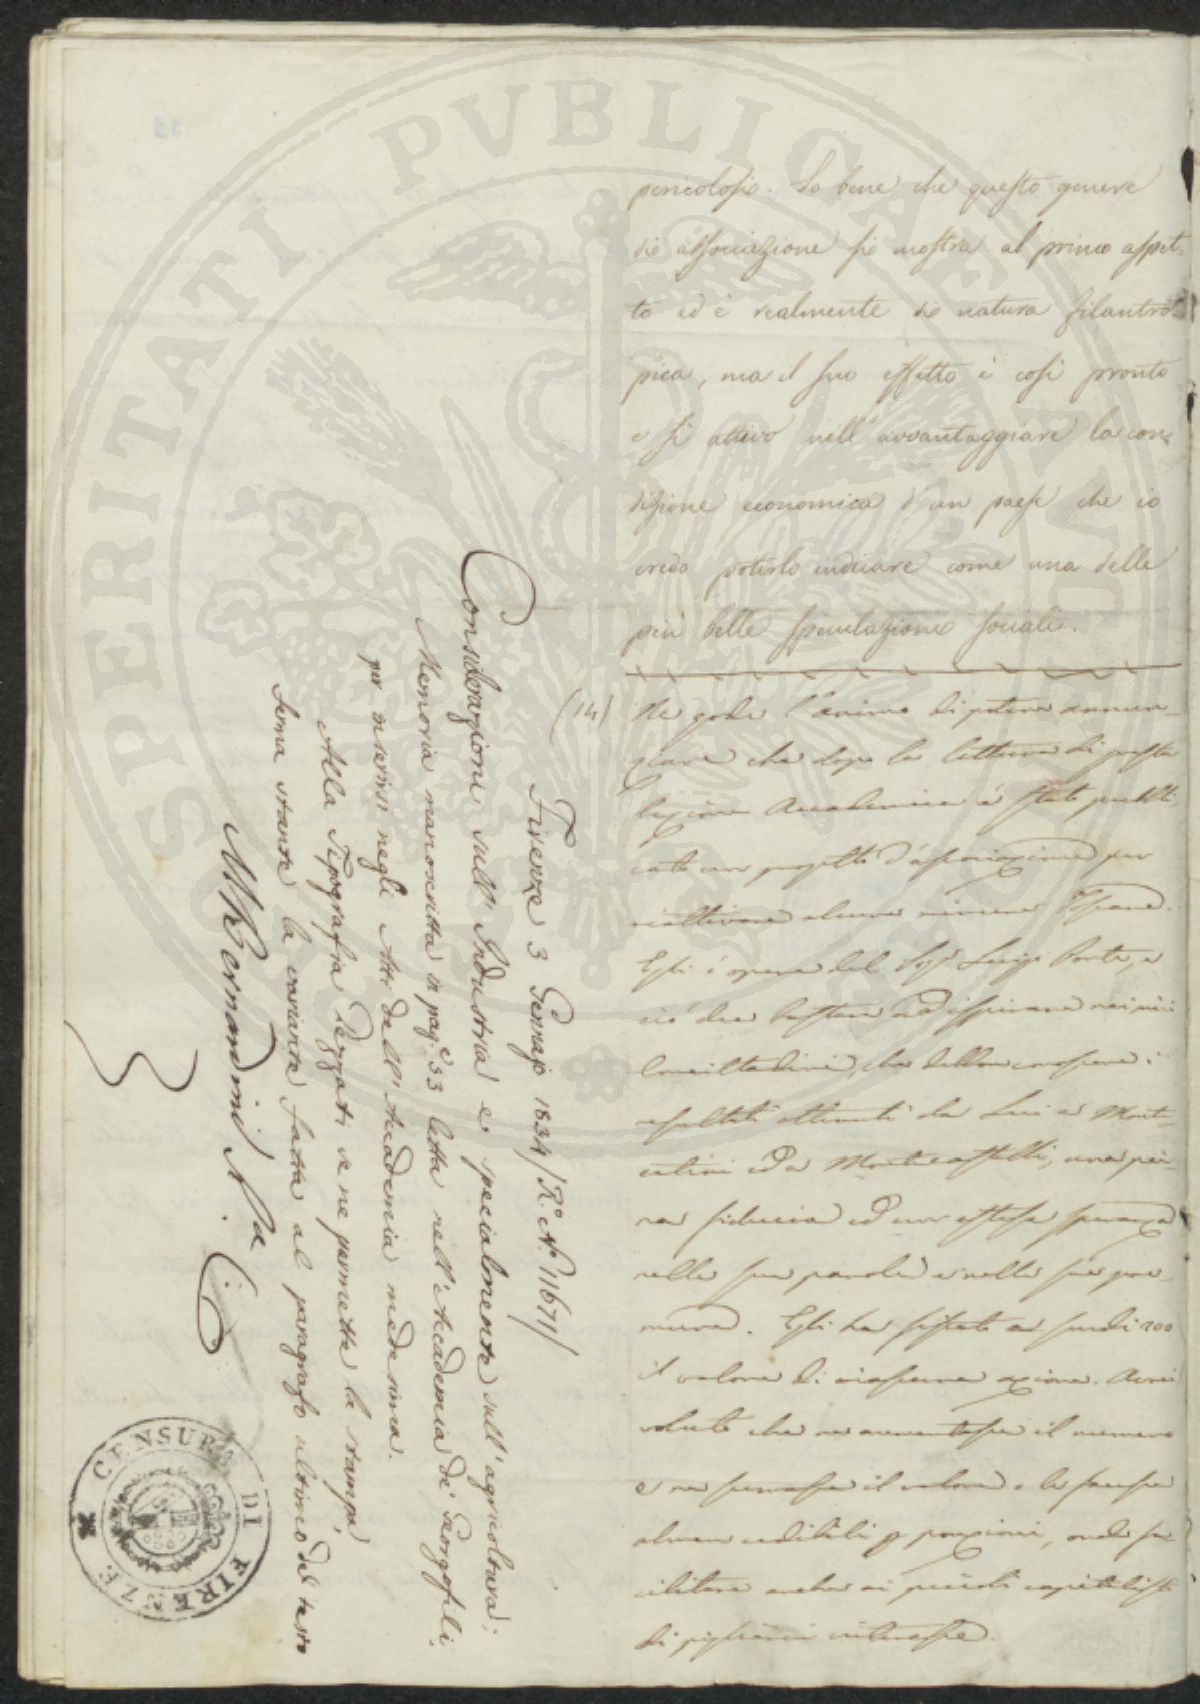 pericolosi. So bene che questo genere
di associazione si mostra al primo aspet-
to ed è realmente di natura filantro-
pica, ma il suo effetto è così pronto
e sì attivo nell'avvantaggiare la con-
dizione economica d'un paese che io
credo poterlo indicare come una delle
più belle speculazioni sociali.
(14) Me gode l'animo di potere annun-
ziare che dopo la lettura di questa
lezione Accademica è stato pubbli
cato un progetto d'associazione per
riattivare alcune miniere Toscane.
Egli è opera del Sigr Luigi Porte, e
ciò dee bastare ad ispirare nei miei
Concittadini, che debbon conoscere i
resultati ottenuti da Lui a Monte-
catini ed a Montecastelli, una pie-
na fiducia ed una estesa speranza
nelle sue parole e nelle sue pre-
mure. Egli ha fissato a scudi 200
il valore di ciascuna azione. Avrei
voluto che ne aumentasse il numero
e ne scemasse il valore o le facesse
almen cedibili p porzioni, onde fa-
cilitare anche ai piccoli capitalisti
di pigliarvi interesse.
Firenze 3 Gennajo 1834 / R.º Nº 11671 /
Considerazioni sull'Industria e specialmente sull'agricoltura;
Memoria manoscritta in pag.e 33 letta nell'Accademia de' Georgofili
per inserirsi negli Atti dell'Accademia medesima.
Alla Tipografia Pezzati se ne permette la stampa,
ferma stante la variante fatta al paragrafo ultimo del testo
M Bernardini
CENSURA DI FIRENZE
SPERITATI PUBLICAE